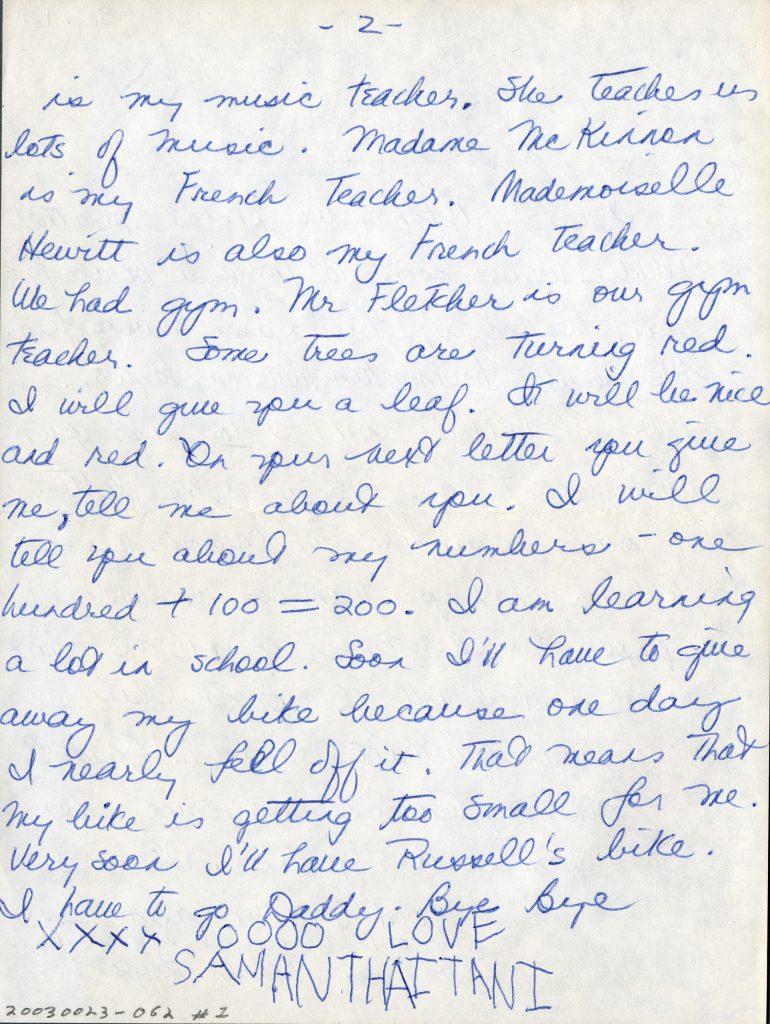 - 2 -
is my music teacher. She teaches us
lots of music. Madame McKinnon
is my French Teacher. Mademoiselle
Hewitt is also my French Teacher.
We had gym. Mr Fletcher is our gym
teacher. Some trees are turning red.
I will give you a leaf. It will be nice
and red. On your next letter you give
me, tell me about you. I will
tell you about my numbers - one
hundred + 100 = 200. I am learning
a lot in school. Soon I'll have to give
away my bike because one day
I nearly fell off it. That means that
my bike is getting too small for me.
Very soon I'll have Russell's bike.
I have to go Daddy. Bye Bye
XXXX OOOO LOVE
SAMANTHA ITANI
20030023-062 #1